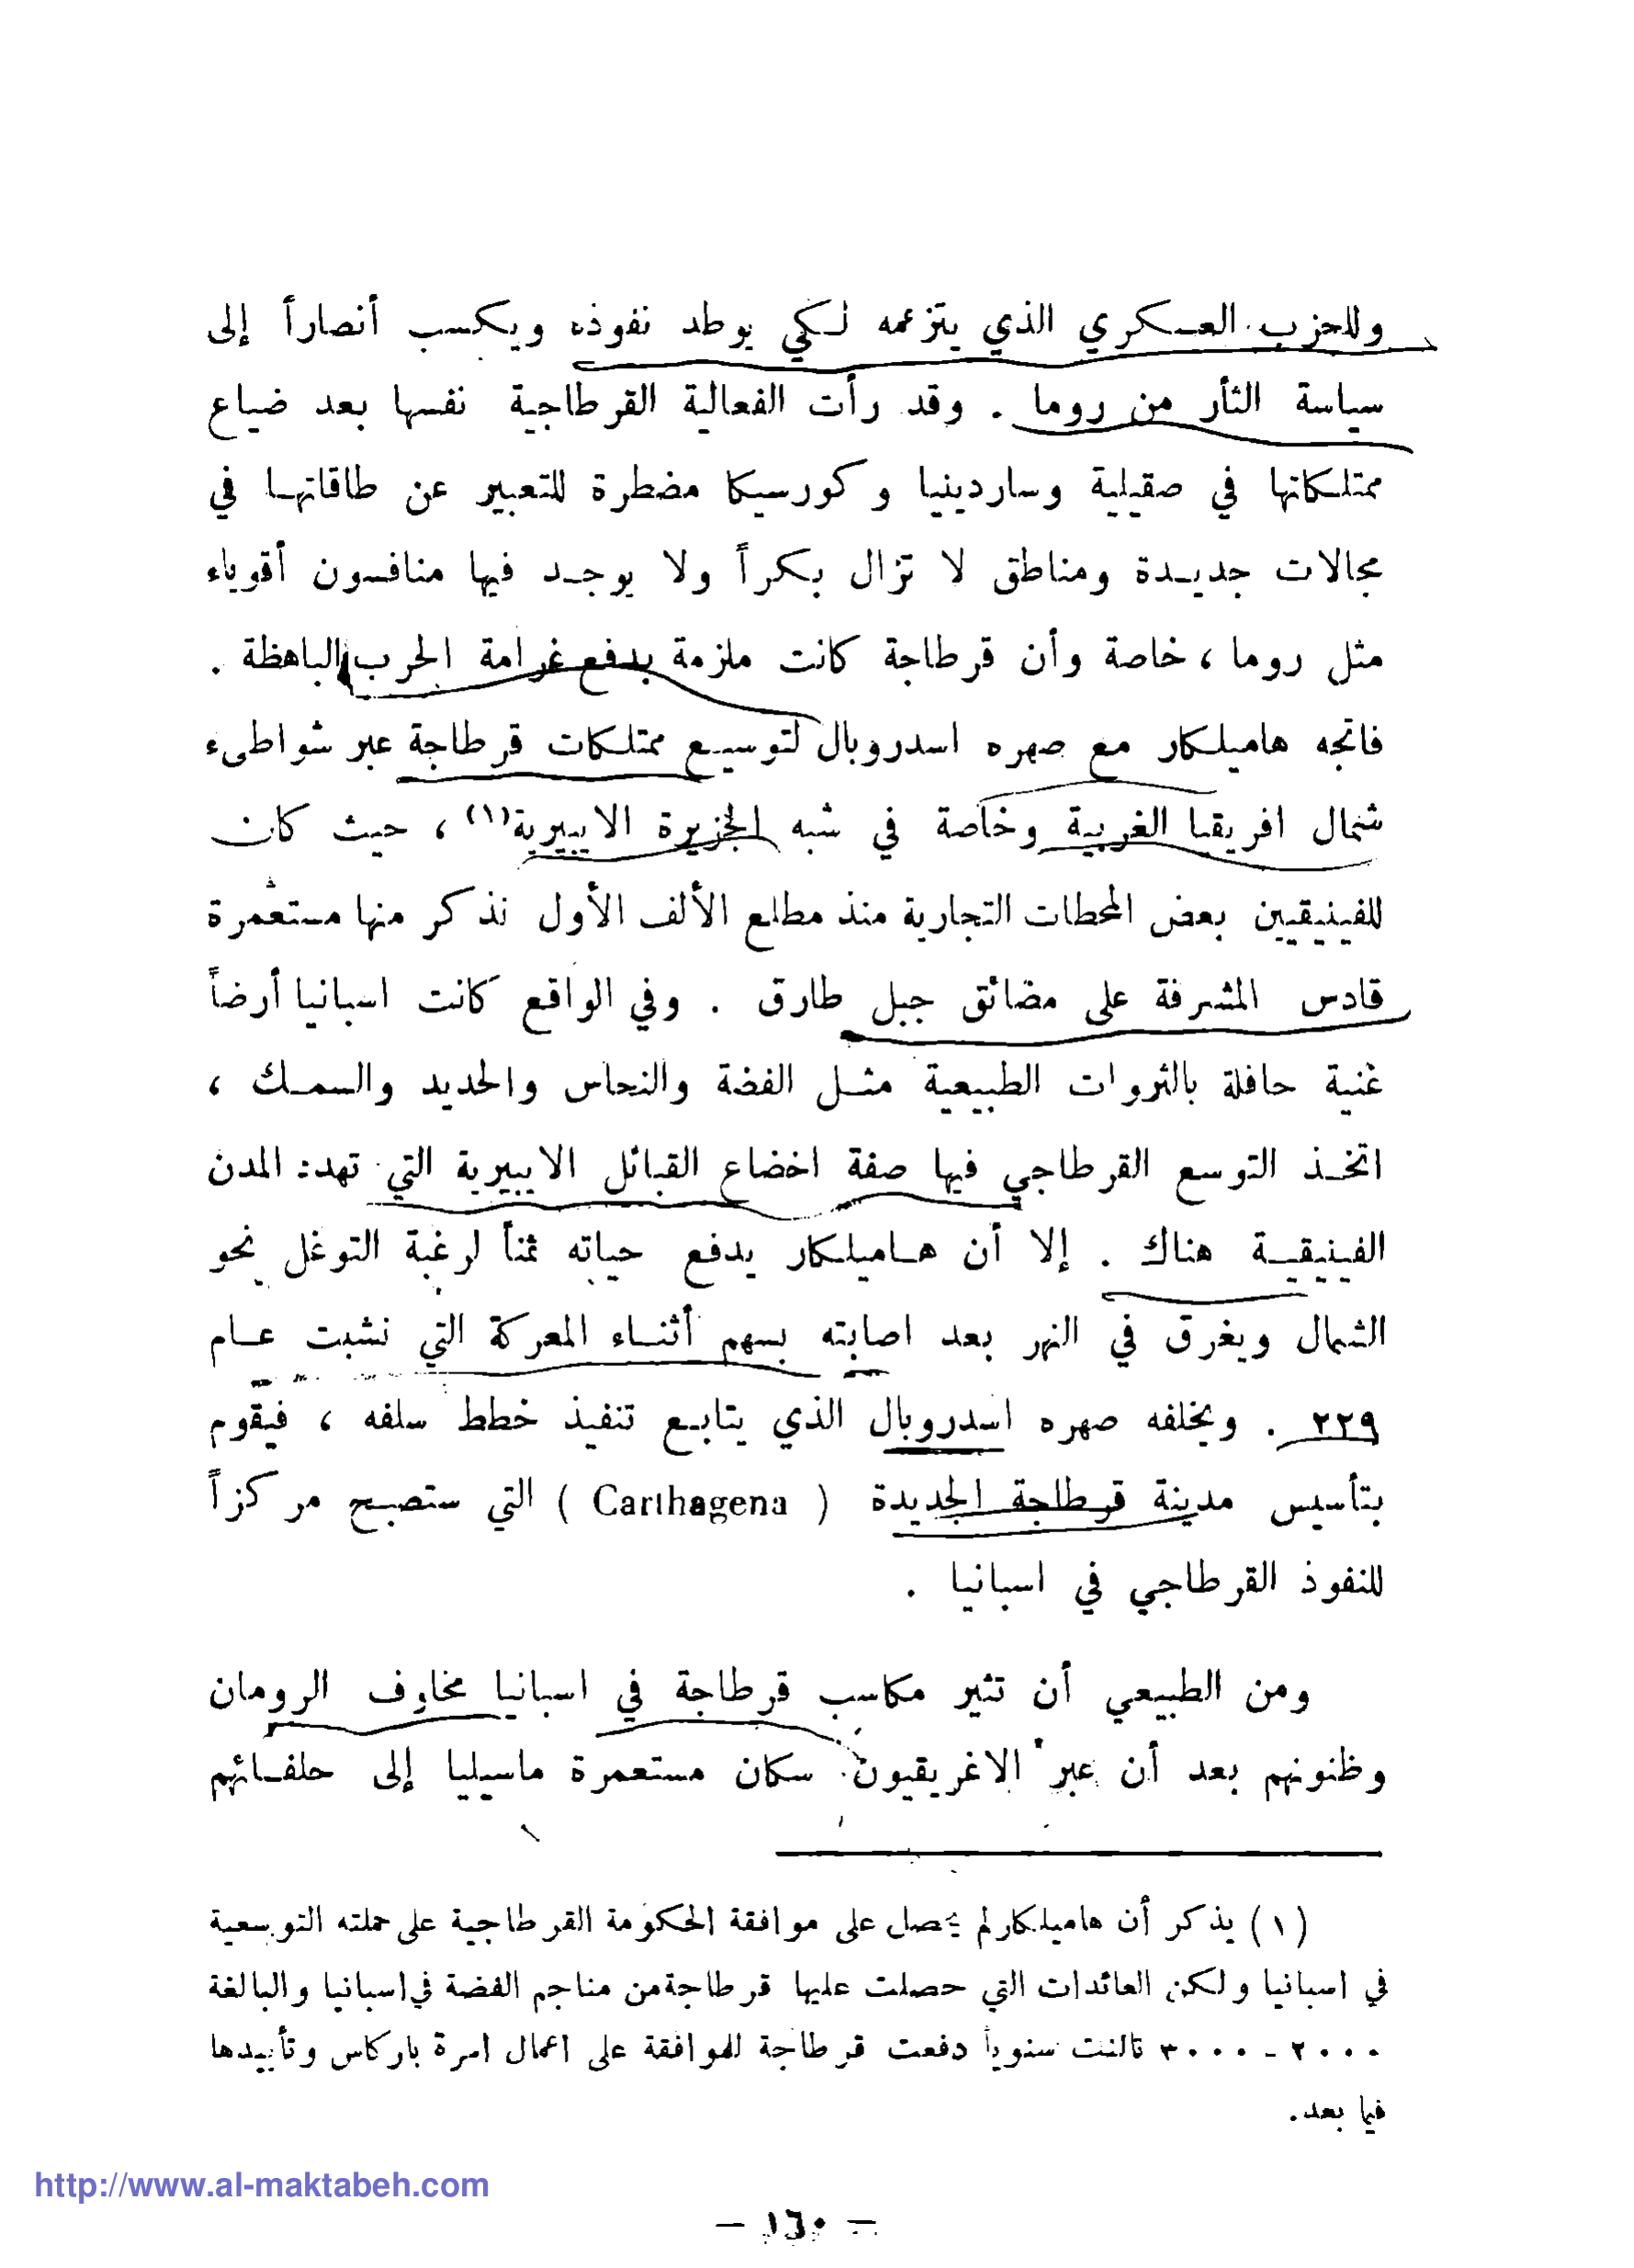 وللحزب العسكري الذي يتزعمه لكي يوطد نفوذه ويكسب أنصاراً إلى
سياسة الثأر من روما . وقد رأت الفعالية القرطاجية نفسها بعد ضياع
ممتلكاتها في صقيلية وساردينيا وكورسيكا مضطرة للتعبير عن طاقاتها في
مجالات جديدة ومناطق لا تزال بكراً ولا يوجد فيها منافسون أقوياء
مثل روما ، خاصة وأن قرطاجة كانت ملزمة بدفع غرامة الحرب الباهظة .
فاتجه هاميلكار مع صهره اسدروبال لتوسيع ممتلكات قرطاجة عبر شواطىء
شمال افريقيا الغربية وخاصة في شبه الجزيرة الايبيرية(١) ، حيث كان
للفينيقيين بعض المحطات التجارية منذ مطلع الألف الأول نذكر منها مستعمرة
قادس المشرفة على مضائق جبل طارق . وفي الواقع كانت اسبانيا أرضاً
غنية حافلة بالثروات الطبيعية مثل الفضة والنحاس والحديد والسمك ،
اتخذ التوسع القرطاجي فيها صفة اخضاع القبائل الايبيرية التي تهدد المدن
الفينيقية هناك . إلا أن هاميلكار يدفع حياته ثمناً لرغبة التوغل نحو
الشمال ويغرق في النهر بعد اصابته بسهم أثناء المعركة التي نشبت عام
٢٢٩ . ويخلفه صهره اسدروبال الذي يتابع تنفيذ خطط سلفه ، فيقوم
بتأسيس مدينة قرطاجة الجديدة ( Carthagena ) التي ستصبح مركزاً
للنفوذ القرطاجي في اسبانيا .
ومن الطبيعي أن تثير مكاسب قرطاجة في اسبانيا مخاوف الرومان
وظنونهم بعد أن عبر الاغريقيون سكان مستعمرة ماسيليا إلى حلفائهم
(١) يذكر أن هاميلكار لم يحصل على موافقة الحكومة القرطاجية على حملته التوسعية
في اسبانيا ولكن العائدات التي حصلت عليها قرطاجة من مناجم الفضة في اسبانيا والبالغة
٢٠٠٠ - ٣٠٠٠ تالنت سنوياً دفعت قرطاجة للموافقة على اعمال اسرة باركاس وتأييدها
فيما بعد.
http://www.al-maktabeh.com
— ١٦٠ —